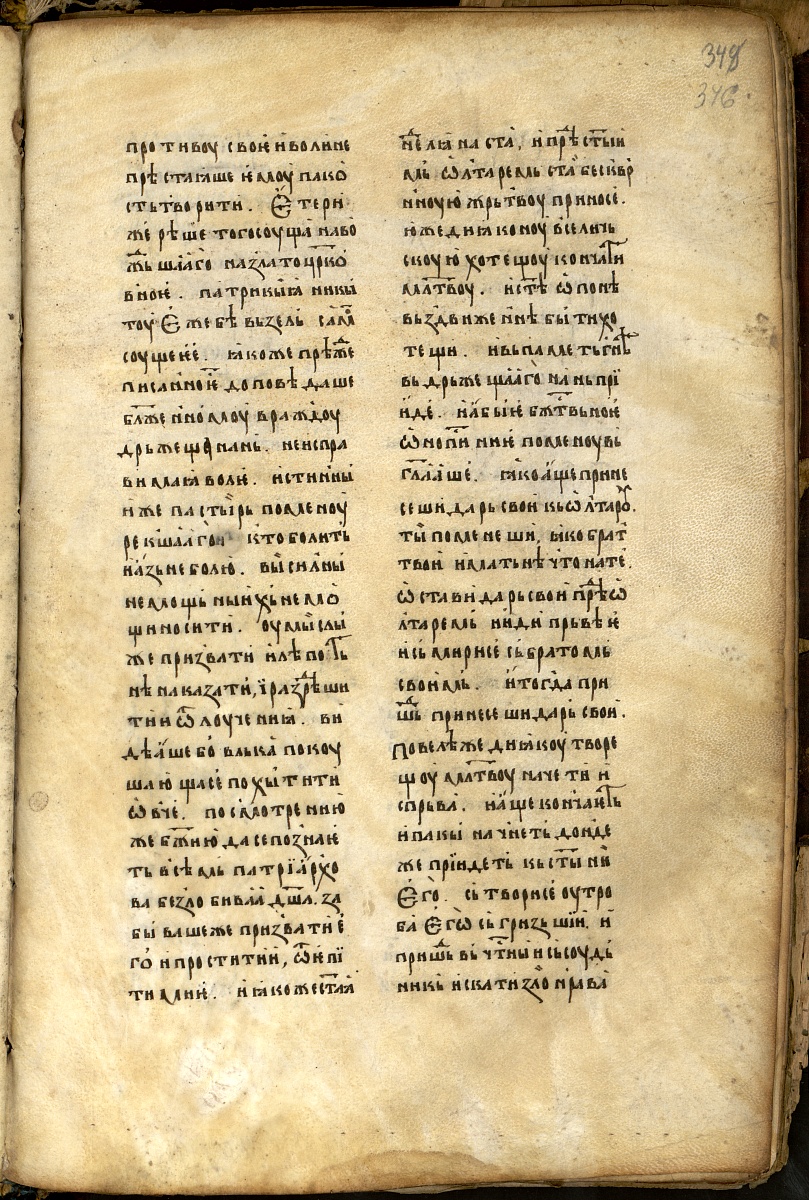 348
346.
противоу своѥи воли не
прѣстаꙗше ѥмоу пако
сть творити. Ѥтери
же рѣше того соуща навѡ
жⷣьшааго на златоцрⷦо
вноѥ. патрикыꙗ никы
тоу Ѥже бѣ вьзель самⷨ
соущеѥ. ꙗкоже прѣжⷣе
писанноѥ доповѣдаше
блⷤенномоу враждоу
дрьжеща нань. неиспра
вимаꙗ воли. истинны
иже пастырь поменоу
рекшаго кто болить
и азь не болю. вы силны
немощьныихь немо
щи носити. оумысли
же призвати и лѣпотⷭь
нѣ наказати, ї разⷣрѣши
ти и ѿлоучениꙗ. ви
дѣаше бо влька покоу
шающасе похытити
ѡвче. посмотрению
же бжⷤию да се познаѥ
ть всѣмь патрїархо
ва безлобиваа дш҃а. за
бываше же призвати ѥ
го и простити и, ѿ ѥпї
тимиѥ. и ꙗкоже стаꙗ
нⷣелꙗ наста, и прѣⷣ стыи
мь ѡлтаремь ста бесквр
нноую жрьтвоу приносе.
юже диꙗконоу вьселичь
скоую хотещоу кончати
млтвоу. и стѣ ѡпонѣ
вьздвиженнѣ быти хо
тещи. и вь паметь гнѣⷡ
вь дрьжещааго на нь прї
иде. и абыѥ бжⷭтвьноѥ
ѡно пїниѥ поменоувь
гл҃ааше. ꙗко аще прине
сеши дарь свои кь ѡлтарю.
ты поменеши, ꙗко брат
твои имать нѣчто на те.
ѡстави дарь свои прѣⷣ ѡ
лтаремь и иди прьвѣѥ
и сьмирисе сь братомь
своимь. и тогда при
шьⷣ принесеши дарь свои.
Повелѣ же диꙗкоу творе
щоу млтвоу начети и
спрьва. и аще кончаѥть
и пакы начнеть донде
же прїидеть кь стыни
Ѥго. сьтворисе оутро
ба Ѥгѡ сьгризьшїи. и
пришьⷣ вь чтⷭныи сьсоудь
никь искати злонрава